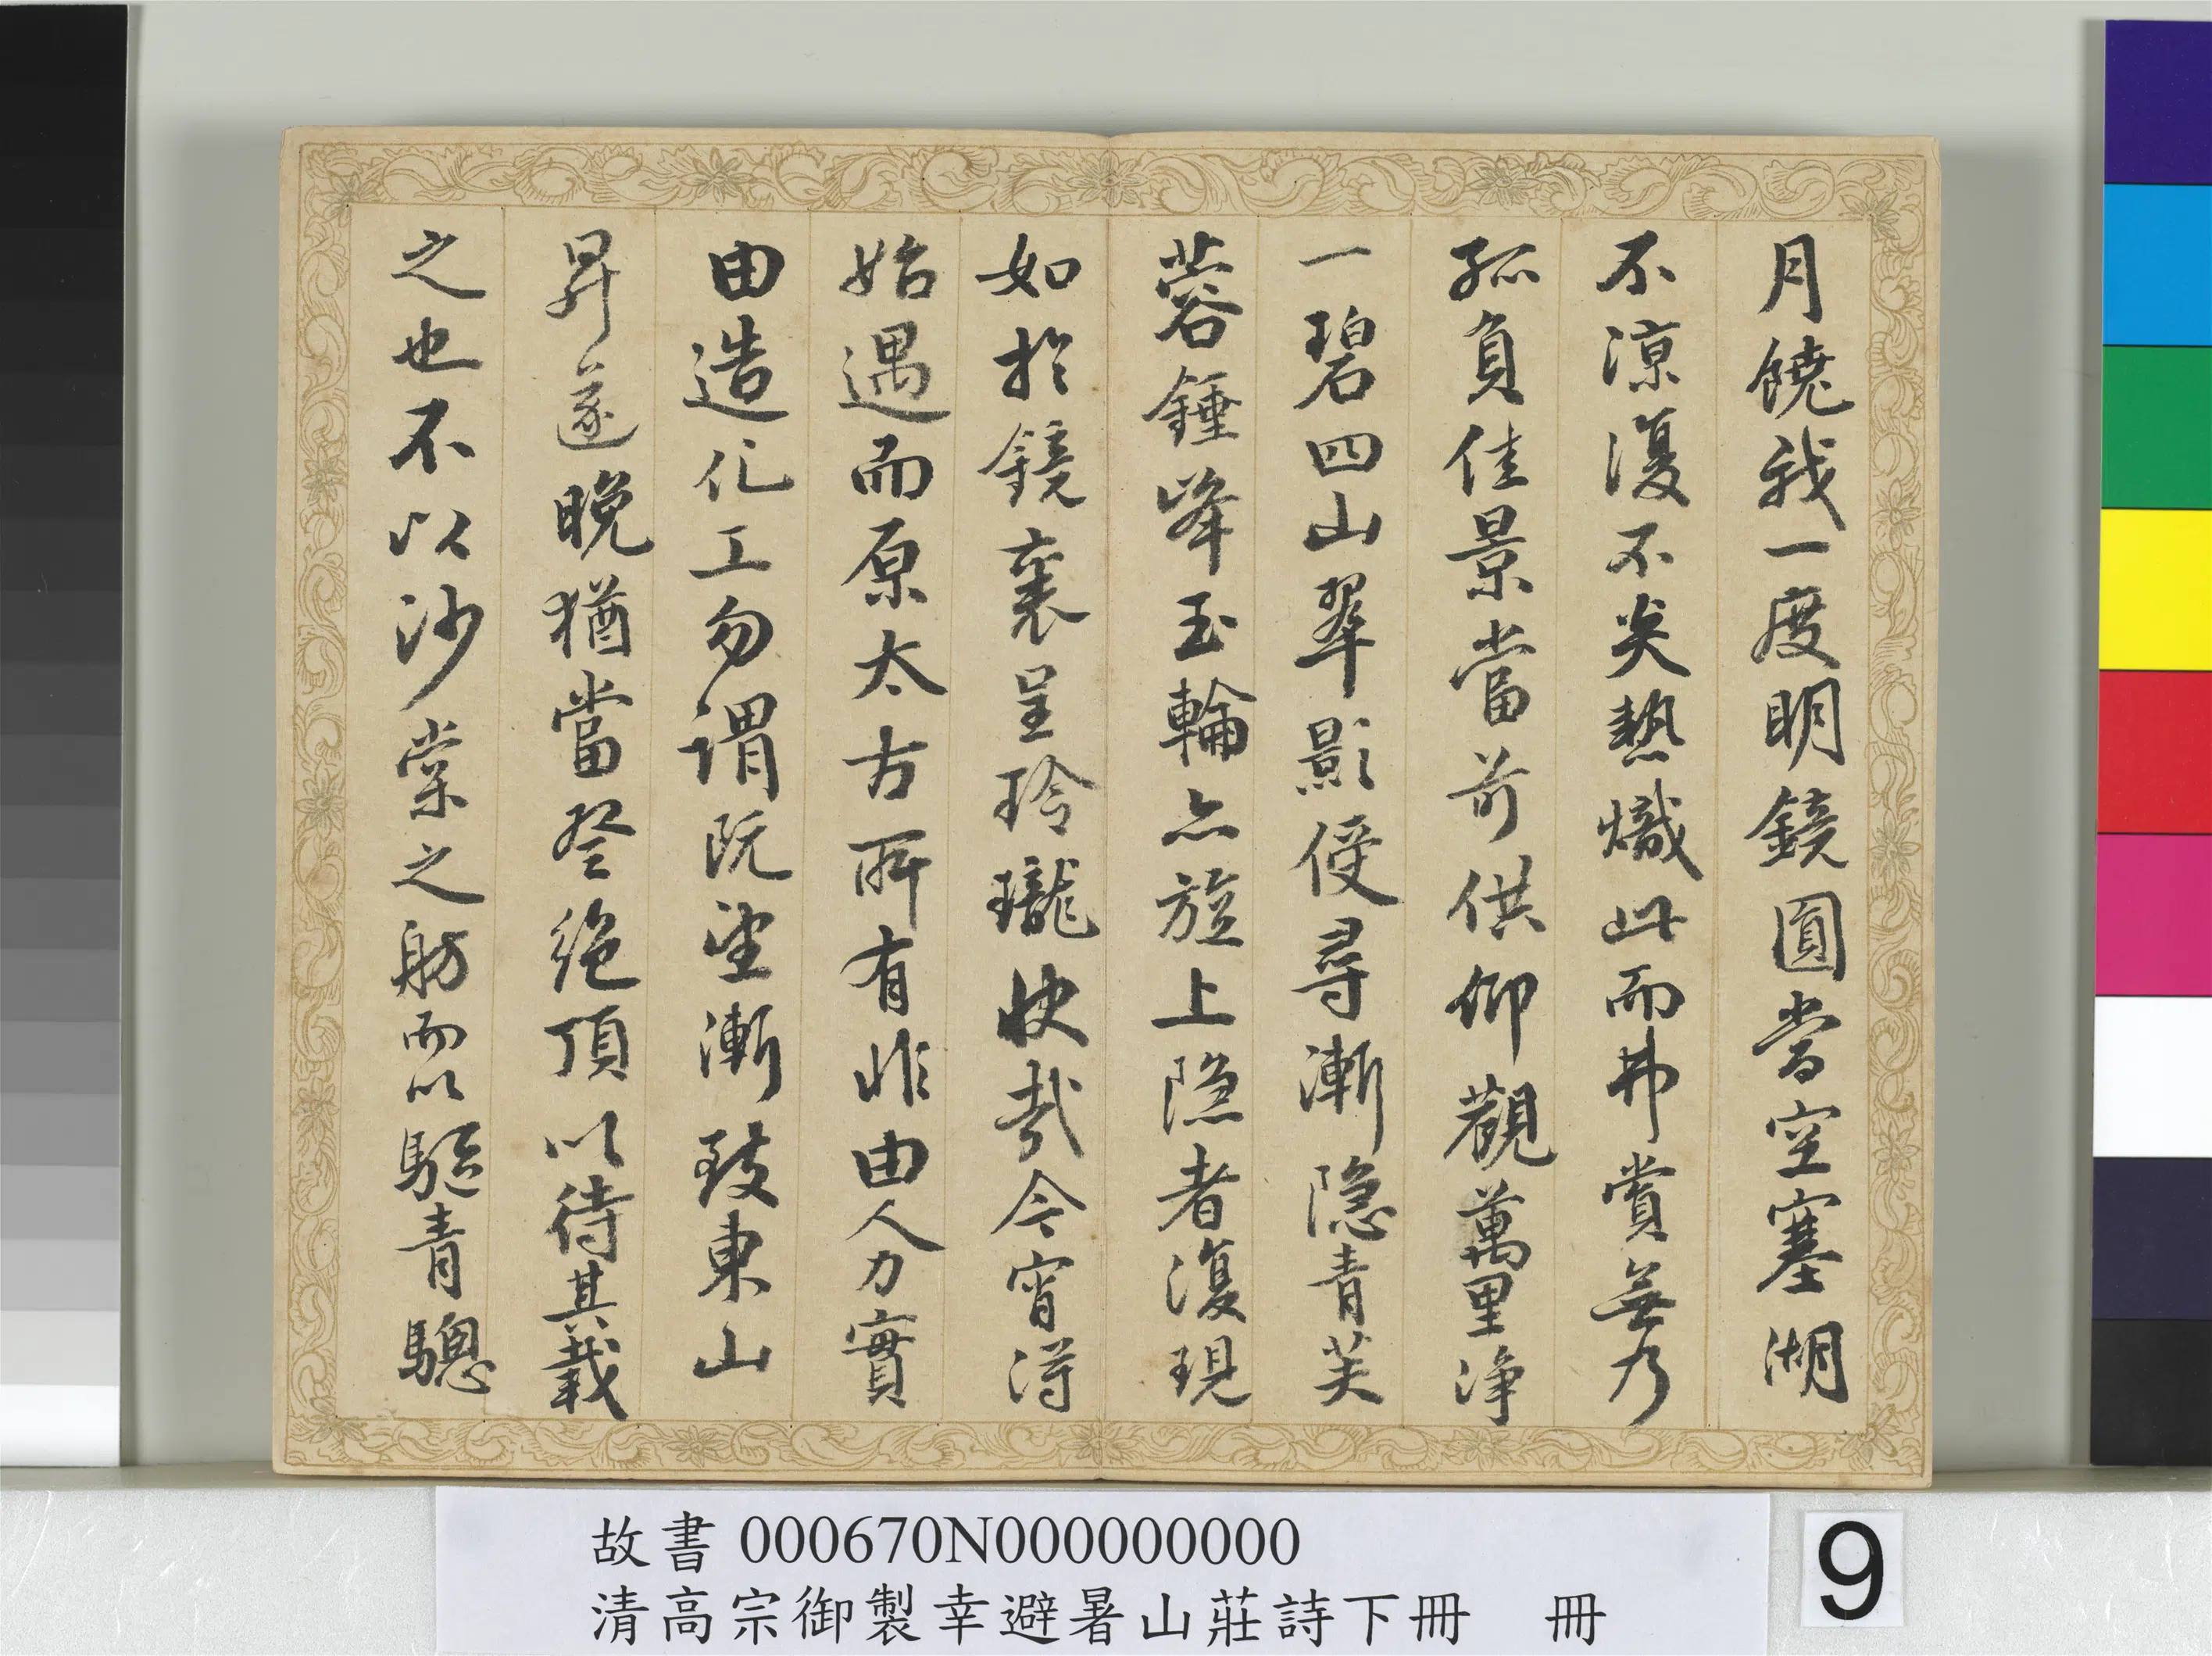 月饒我一度明鏡圓當空塞湖
不涼復不炎熱熾此而弗賞無乃
孤負佳景當前供仰觀萬里淨
一碧四山翠影侵尋漸隱青芙
蓉錘峰玉輪亦旋上隱者復現
如於鏡裏呈玲瓏快哉今宵得
始遇而原太古所有非由人力實
由造化工勿謂既望漸致東山
昇遂晚猶當登絕頂以待其載
之也不以沙棠之舫而以駈青驄
故書 000670N000000000
清高宗御製幸避暑山莊詩下冊　冊
9